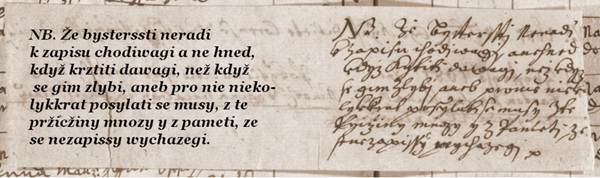 NB. Že bysterssti neradi
k zapisu chodiwagi a ne hned,
když krztiti dawagi, než když
se gim zlybi, aneb pro nie nieko-
lykkrat posylati se musy, z te
pržícžiny mnozy y z pameti, ze
se nezapissy wychazegi.
NB. že bysterssti neradi
k zapisu chodiwagi, a ne hned
kdyz krztiti dawagi, než kdyz
se gim zlybi, aneb pro nie nieko
lykkrat posylati se musy z te
pržicžiny mnozy y z Pameti, ze
se nezapissy wychazegi